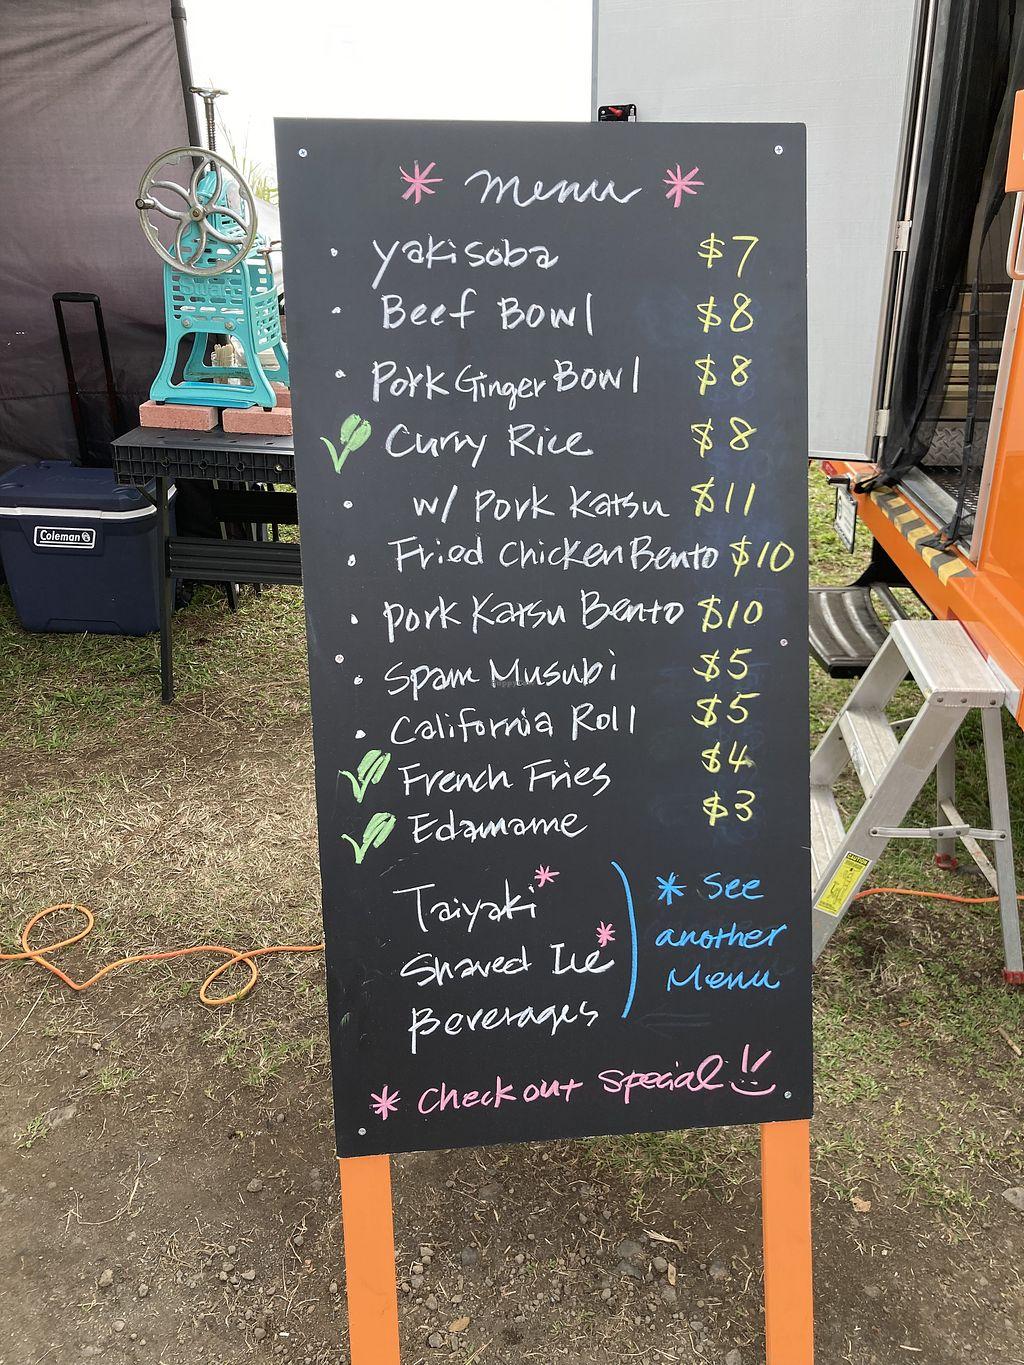 * Menu *
• yakisoba $7
• Beef Bowl $8
• Pork Ginger Bowl $8
Curry Rice $8
• w/ Pork Katsu $11
• Fried Chicken Bento $10
• Pork Katsu Bento $10
• Spam Musubi $5
• California Roll $5
French Fries $4
Edamame $3
Taiyaki*
Shaved Ice*
Beverages
* See
another
Menu
* Check out special
Coleman
Swan
CAUTION